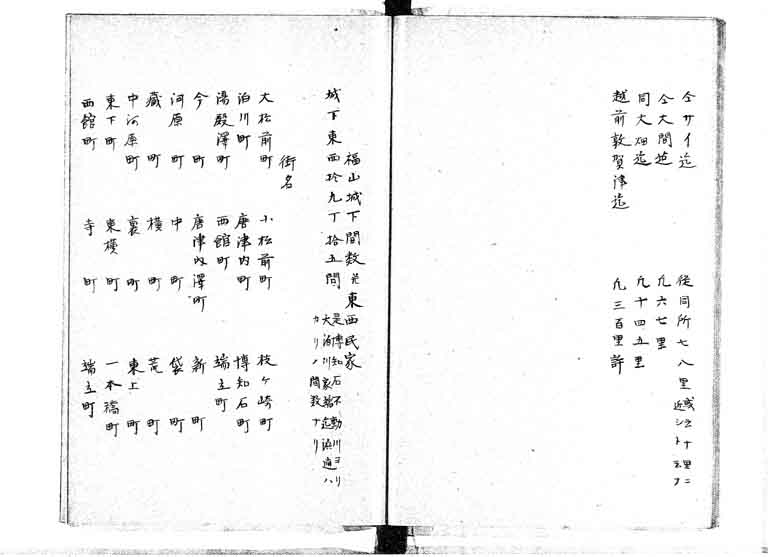 仝サイ迄　従同所七八里或云十里ニ近シト云フ
仝大間迄　凢六七里
同大畑迄　凢十四五里
越前敦賀津迄　凢三百里許
福山城下間数並東西民家
城下東西拾九丁拾五間　是博知石不動川ヨリ大泊川家端迄濱通ハカリノ間数ナリ
街名
大松前町　小松前町　枝ヶ崎町
泊川町　唐津内町　博知石町
湯殿澤町　西館町　端立町
今町　唐津内澤町　新町
河原町　中町　袋町
蔵町　横町　荒町
中河原町　裏町　東上町
東下町　東横町　一本橋町
西館町　寺町　端立町